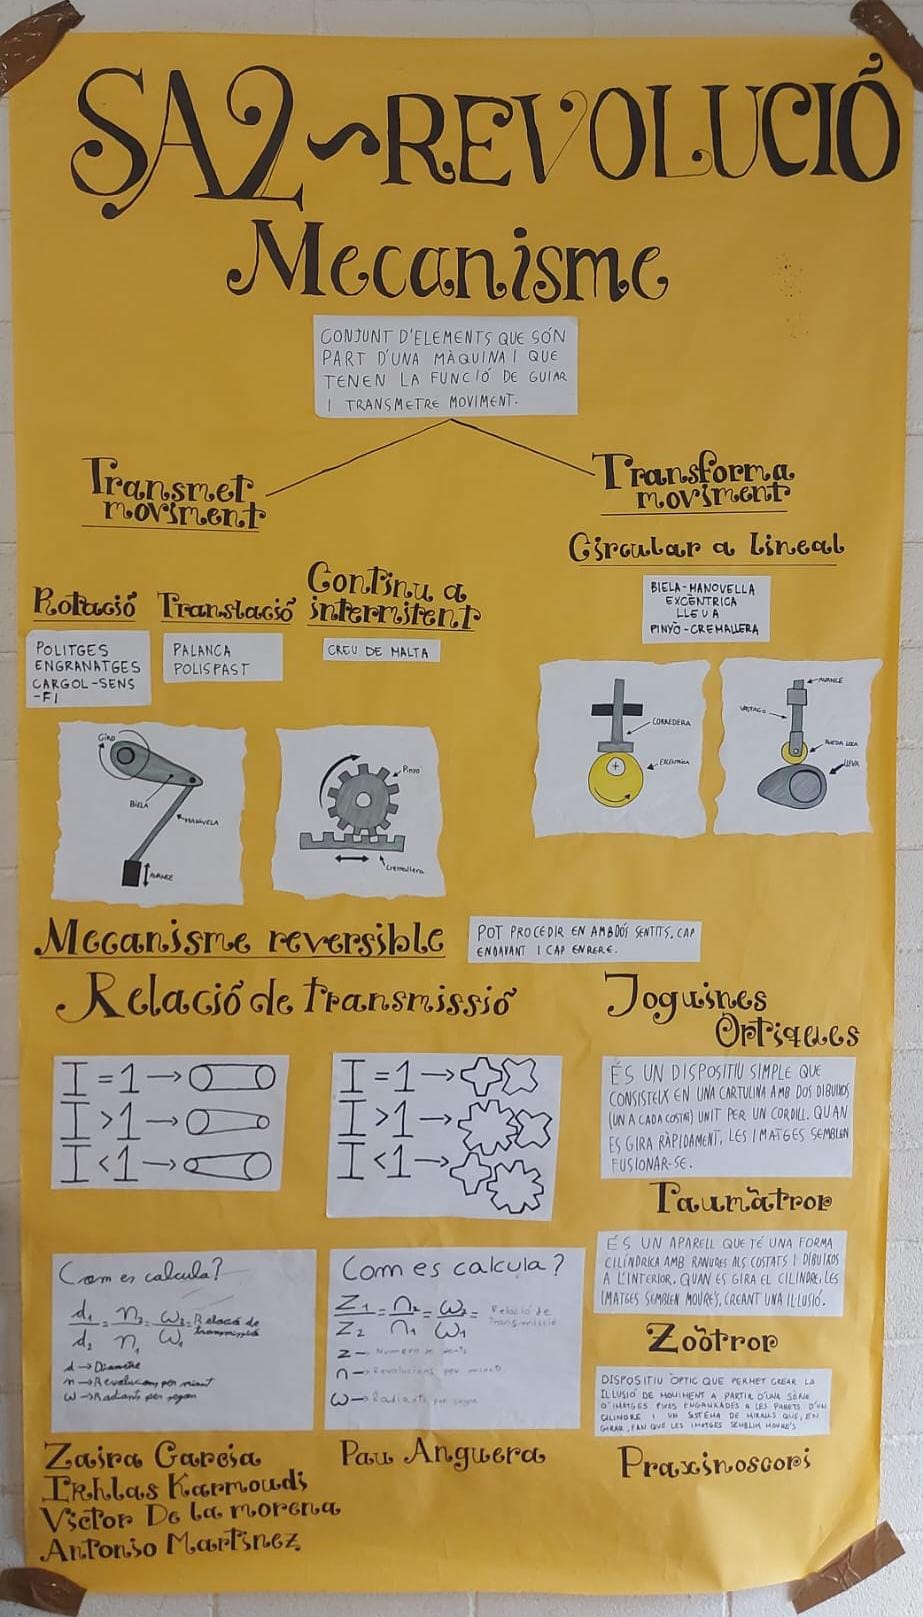 SA2~REVOLUCIÓ
Mecanisme
CONJUNT D'ELEMENTS QUE SÓN
PART D'UNA MÀQUINA I QUE
TENEN LA FUNCIÓ DE GUIAR
I TRANSMETRE MOVIMENT.
Transmet
moviment
Transforma
moviment
Rotació
POLITGES
ENGRANATGES
CARGOL-SENS
-FI
Translació
PALANCA
POLISPAST
Continu a
intermitent
CREU DE MALTA
Circular a Lineal
BIELA-MANOVELLA
EXCÈNTRICA
LLEVA
PINYÒ-CREMALLERA
GIRO
BIELA
MANUELA
AVANCE
Pinyo
Cremallera
CORREDERA
EXCENTRICA
AVANCE
VASTAGO
RUEDA LOCA
LLEVA
Mecanisme reversible
POT PROCEDIR EN AMBDÓS SENTITS, CAP
ENDAVANT I CAP ENRERE.
Relació de transmissió
I = 1 →
I > 1 →
I < 1 →
I = 1 →
I > 1 →
I < 1 →
Com es calcula?
d₁/d₂ = n₂/n₁ = ω₂/ω₁ = Relació de
transmissió
d → Diametre
n → Revolucions per minut
ω → Radiants per segon
Com es calcula?
Z₁/Z₂ = n₂/n₁ = ω₂/ω₁ = Relació de
transmissió
Z → Numero de dents
n → Revolucions per minut
ω → Radiants per segon
Joguines
Òptiques
ÉS UN DISPOSITIU SIMPLE QUE
CONSISTEIX EN UNA CARTULINA AMB DOS DIBUIXOS
(UN A CADA COSTAT) UNIT PER UN CORDILL. QUAN
ES GIRA RÀPIDAMENT, LES IMATGES SEMBLEN
FUSIONAR-SE.
Taumàtrop
ÉS UN APARELL QUE TÉ UNA FORMA
CILÍNDRICA AMB RANURES ALS COSTATS I DIBUIXOS
A L'INTERIOR. QUAN ES GIRA EL CILINDRE, LES
IMATGES SEMBLEN MOURE'S, CREANT UNA ILLUSIÓ.
Zoòtrop
DISPOSITIU ÒPTIC QUE PERMET CREAR LA
ILLUSIÓ DE MOVIMENT A PARTIR D'UNA SÈRIE
D'IMATGES FIXES ENGANXADES A LES PARETS D'UN
CILINDRE I UN SISTEMA DE MIRALLS QUE, EN
GIRAR, FAN QUE LES IMATGES SEMBLIN MOURE'S
Praxinoscopi
Zaira Garcia
Ikhlas Karmoudi
Victor De la morena
Antonio Martinez
Pau Anguera